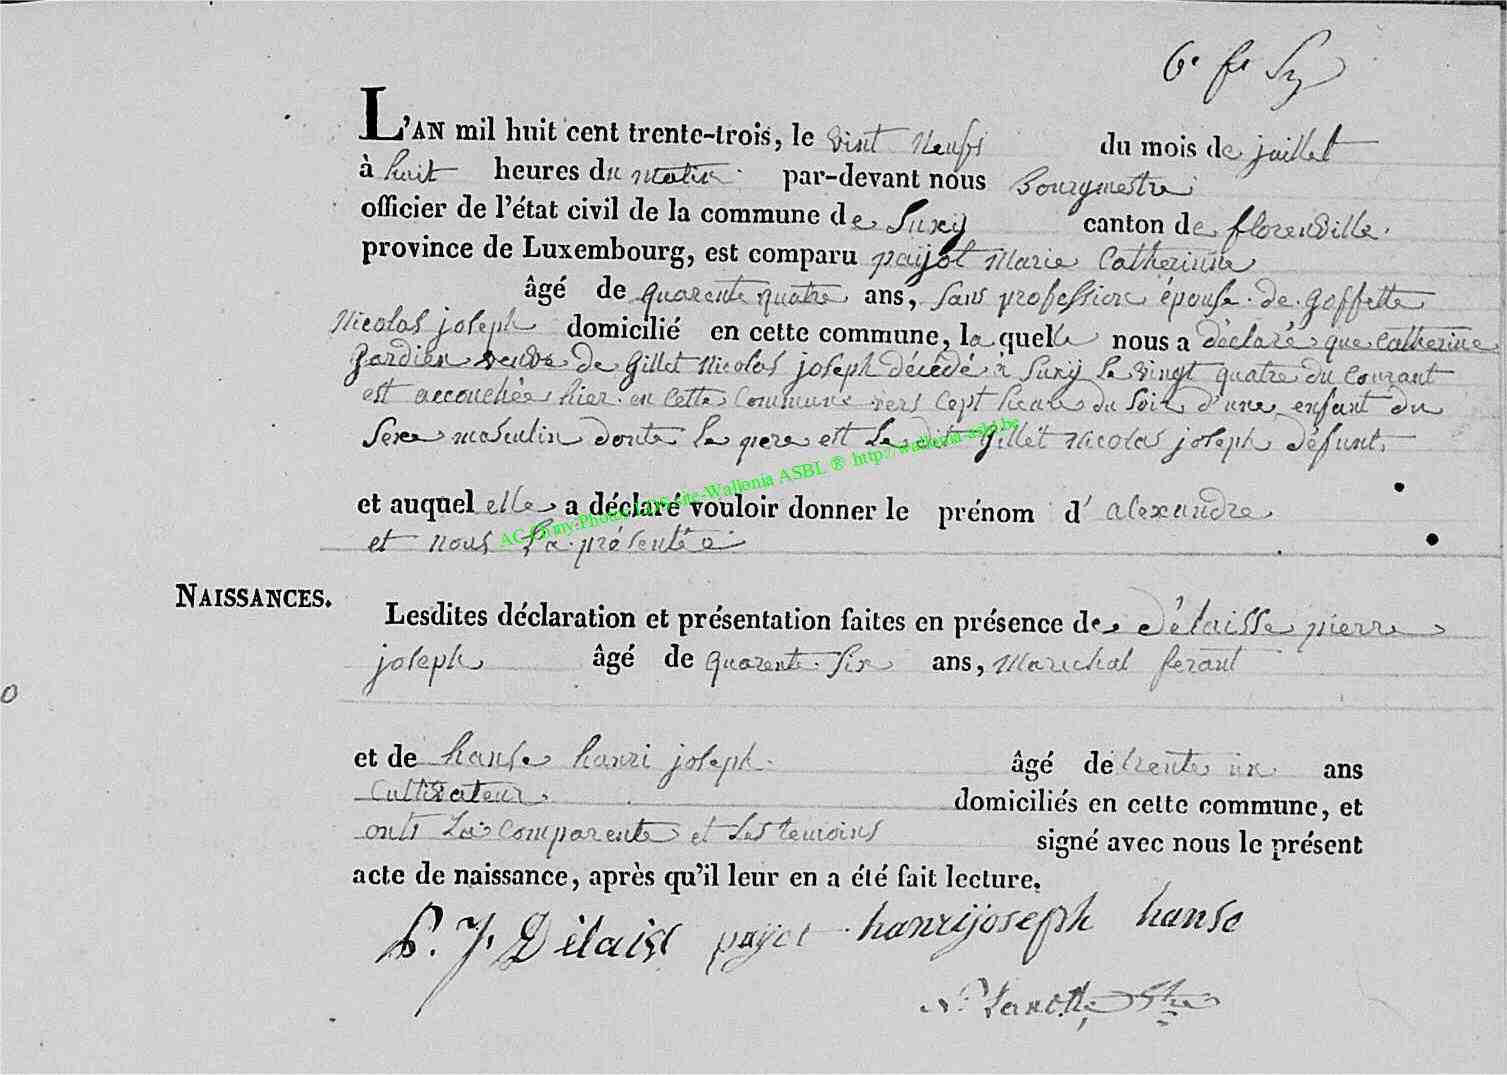 6e fe Sy
L'AN mil huit cent trente-trois, le vint neufs du mois de juillet
à huit heures du matin par-devant nous Bourgmestre
officier de l'état civil de la commune de Suxÿ canton de florenville
province de Luxembourg, est comparu payot Marie Catherinne
âgé de quarente quatre ans, sans profession épouse de goffette
Nicolas joseph domicilié en cette commune, la quelle nous a déclaré que Catherine
gardien veuve de Gillet Nicolas joseph décédé à Suxÿ le vingt quatre du courant
est accouchée hier en cette Commune vers cept heure du soir d'une enfant du
sexe masculin donte le pere est le dit Gillet Nicolas joseph défunt.
et auquel elle a déclaré vouloir donner le prénom d'alexandre
et nous la présentée
AC Photos LDS site-Wallonia ASBL ® http://wallonia-asbl.be
NAISSANCES.
Lesdites déclaration et présentation faites en présence de Délaisse pierre
joseph âgé de quarente six ans, Marechal ferant
o
et de hanse hanri joseph âgé de trente un ans
Cultivateur domiciliés en cette commune, et
onts La Comparente et Les temoins signé avec nous le présent
acte de naissance, après qu'il leur en a été fait lecture.
P. J. Délaiss payot hanrijoseph hanse